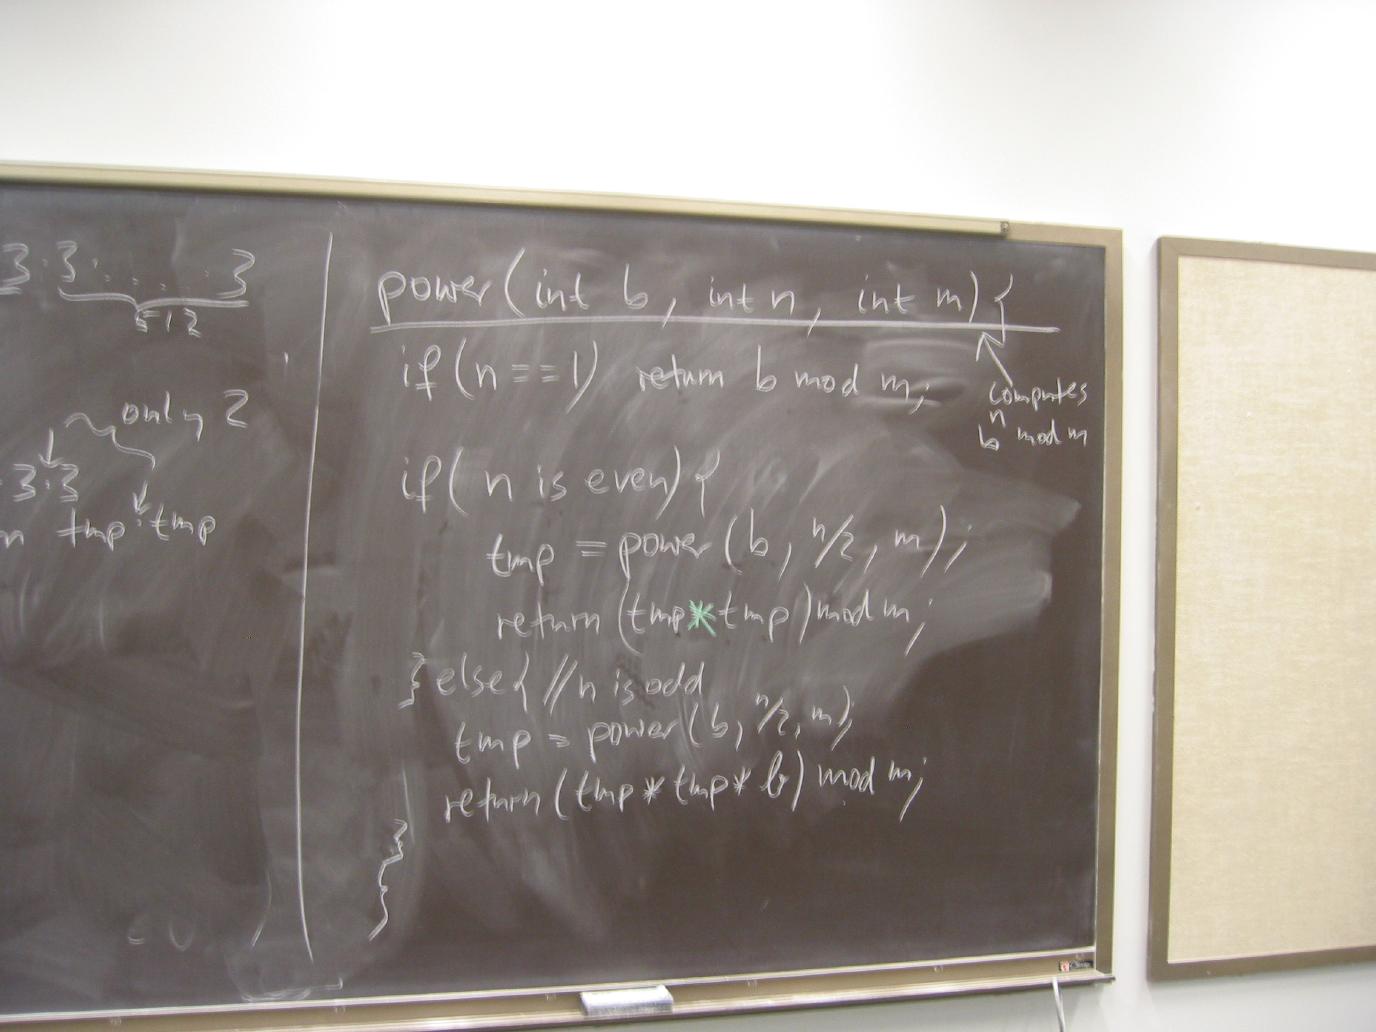 3·3· . . . . 3
512
only 2
·3·3
tmp·tmp
power(int b, int n, int m){
if(n==1) return b mod m;
computes
bⁿ mod m
if(n is even){
tmp = power(b, n/2, m);
return (tmp*tmp) mod m;
}else{ //n is odd
tmp = power(b, n/2, m);
return (tmp*tmp*b) mod m;
}
}